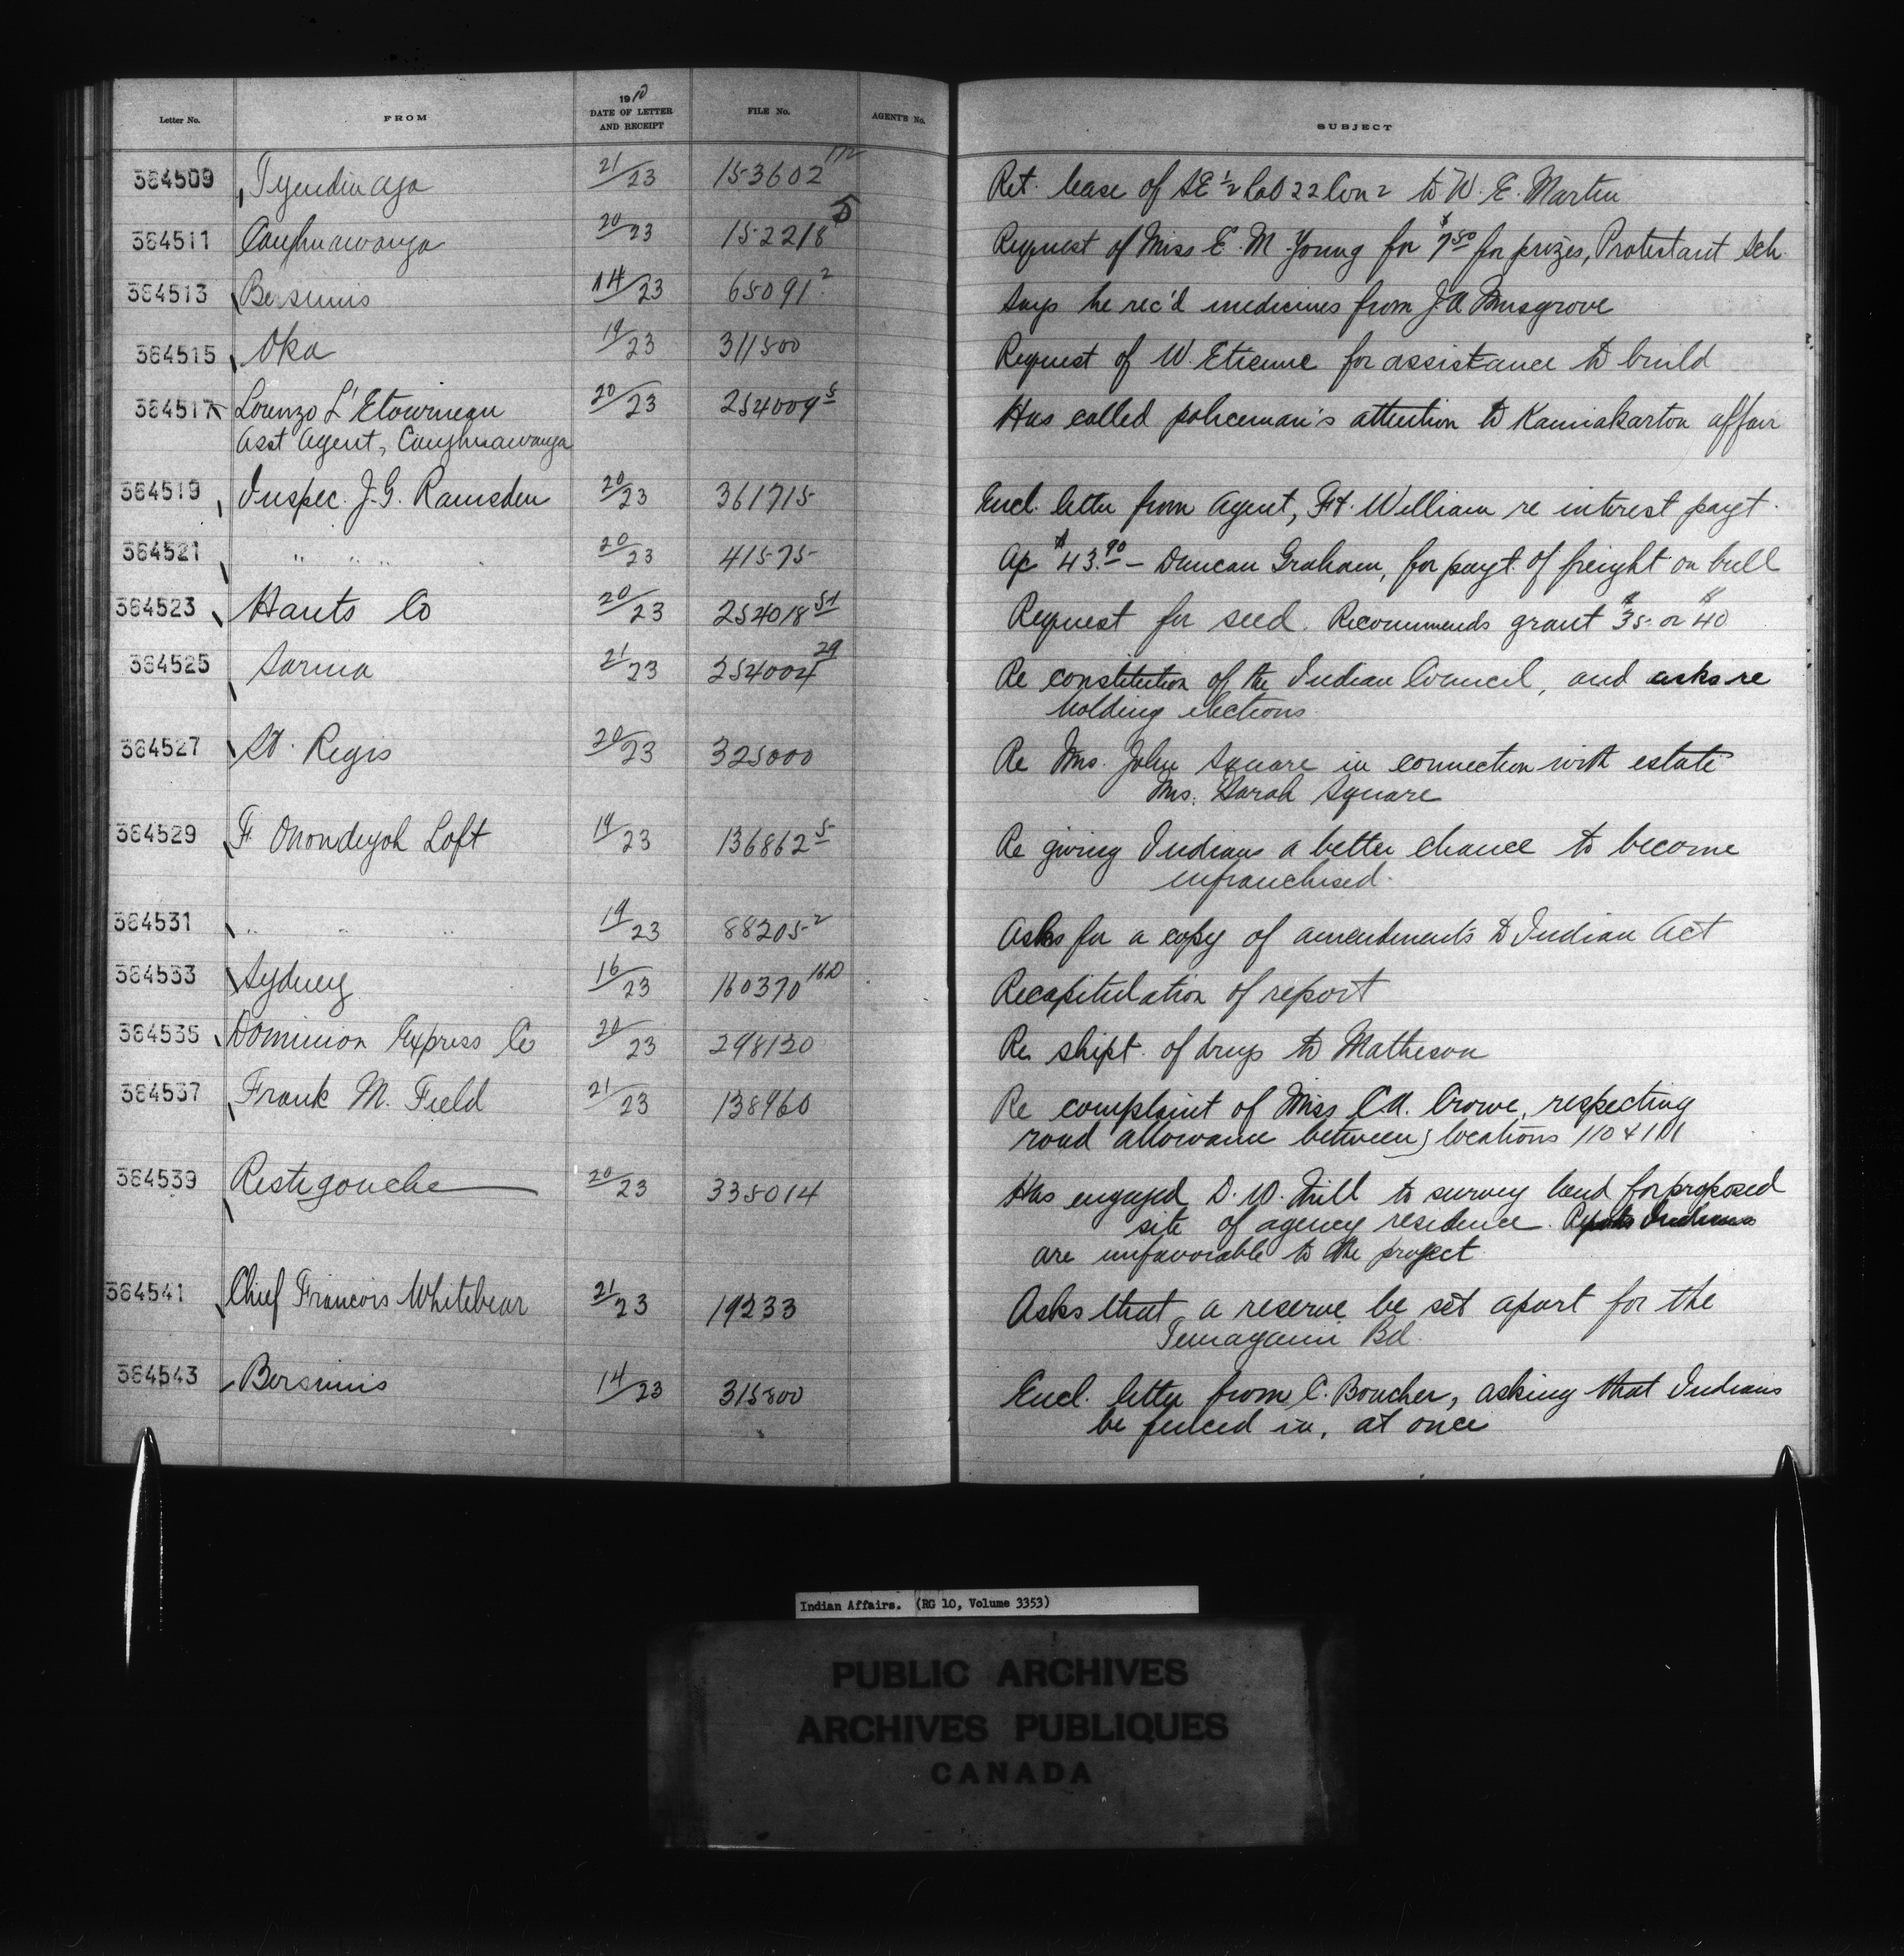 Letter No. FROM 1910 DATE OF LETTER AND RECEIPT FILE No. AGENT'S No. SUBJECT
364509 Tyendinaga 21/23 153602 112 Ret. lease of SE 1/2 Lot 22 Con 2 to W. E. Martin
364511 Caughnawaga 20/23 152218 5 Request of Miss E. M. Young for $7.50 for prizes, Protestant Sch.
364513 Bersimis 14/23 65091 2 Says he rec'd medicines from J. A. Musgrove
364515 Oka 19/23 311500 Request of W. Etienne for assistance to build
364517 Lorenzo L'Etourneau 20/23 254009 5 Has called policeman's attention to affair
Asst Agent, Caughnawaga
364519 Inspec. J. G. Ramsden 20/23 361715 Encl. letter from Agent, Ft. William re interest payt.
364521 " " " 20/23 41575 Ap $43.90 – Duncan Graham, for payt. of freight on bull
364523 Hants Co 20/23 254018 51 Request for seed. Recommends grant $35 or $40
364525 Sarnia 21/23 254004 29 Re constitution of the Indian Council, and asks re
holding elections
364527 St. Regis 20/23 325000 Re Mrs. John Square in connection with estate
Mrs. Sarah Square
364529 F. Onondeyoh Loft 19/23 136862 5 Re giving Indians a better chance to become
enfranchised.
364531 " " " 19/23 88205 2 Asks for a copy of amendments to Indian Act
364533 Sydney 16/23 160370 16D Recapitulation of report
364535 Dominion Express Co 20/23 298130 Re shipt. of drugs to Matheson
364537 Frank M. Field 21/23 138960 Re complaint of Miss C.A. Crowe, respecting
road allowance between locations 110 & 111
364539 Restigouche 20/23 335014 Has engaged D. W. Mill to survey land for proposed
site of agency residence. Reports Indians
are unfavorable to the project
364541 Chief Francois Whitebear 21/23 19233 Asks that a reserve be set apart for the
Temagami Bd.
364543 Bersimis 14/23 315800 Encl. letter from C. Boucher, asking that Indians
be fenced in, at once
Indian Affairs. (RG 10, Volume 3353)
PUBLIC ARCHIVES
ARCHIVES PUBLIQUES
CANADA